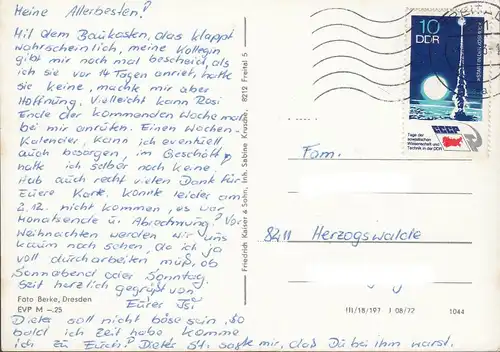 Meine Allerbesten!
Mit dem Baukasten, das klappt
wahrscheinlich, meine Kollegin
gibt mir noch mal bescheid, als
ich sie vor 14 Tagen anriet, hatte
sie keine, machte mir aber
Hoffnung. Vielleicht kann Rosi
Ende der kommenden Woche mal
bei mir anrufen. Einen Wochen-
Kalender, kann ich eventuell
auch besorgen, im Geschäft
hatte ich selber noch keine.
Hab auch recht vielen Dank für
Euere Karte. Konnte leider am
2.12. nicht kommen, es war
Monatsende u. Abrechnung! Vor
Weihnachten werden wir uns
kaum noch sehen, da ich ja
voll durcharbeiten muß, ob
Sonnabend oder Sonntag.
Seit herzlich gegrüßt von
Eurer
Dieter soll nicht böse sein, so
bald ich Zeit habe komme
ich zu Euch! Dieter St. sagte mir, das Du bei ihm warst.
Foto Berke, Dresden
EVP M –.25
Friedrich Kaiser & Sohn, Inh. Sabine Krusche, 8212 Freital 5
10
DDR
CCCP
Tage der
sowjetischen
Wissenschaft und
Technik in der DDR
Fam.
8211 Herzogswalde
III/18/197 J 08/72 1044